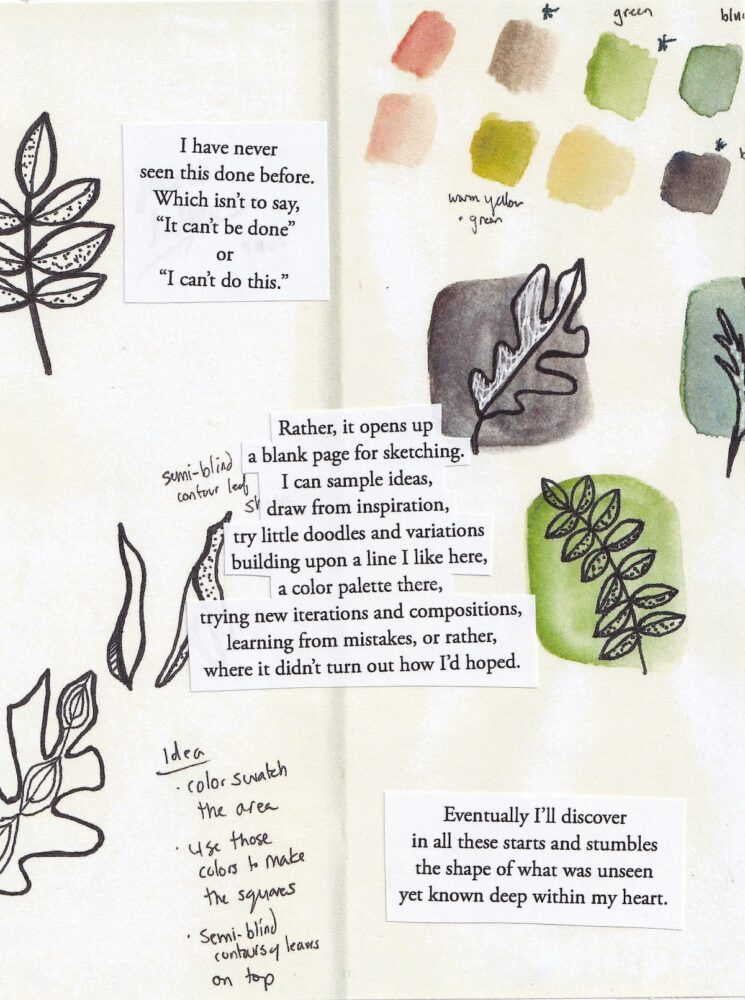 green
warm yellow
+ green
I have never
seen this done before.
Which isn't to say,
“It can't be done”
or
“I can't do this.”
semi-blind
contour leaf
Rather, it opens up
a blank page for sketching.
I can sample ideas,
draw from inspiration,
try little doodles and variations
building upon a line I like here,
a color palette there,
trying new iterations and compositions,
learning from mistakes, or rather,
where it didn't turn out how I'd hoped.
Idea
· color swatch
the area
· use those
colors to make
the squares
· semi-blind
contours of leaves
on top
Eventually I'll discover
in all these starts and stumbles
the shape of what was unseen
yet known deep within my heart.